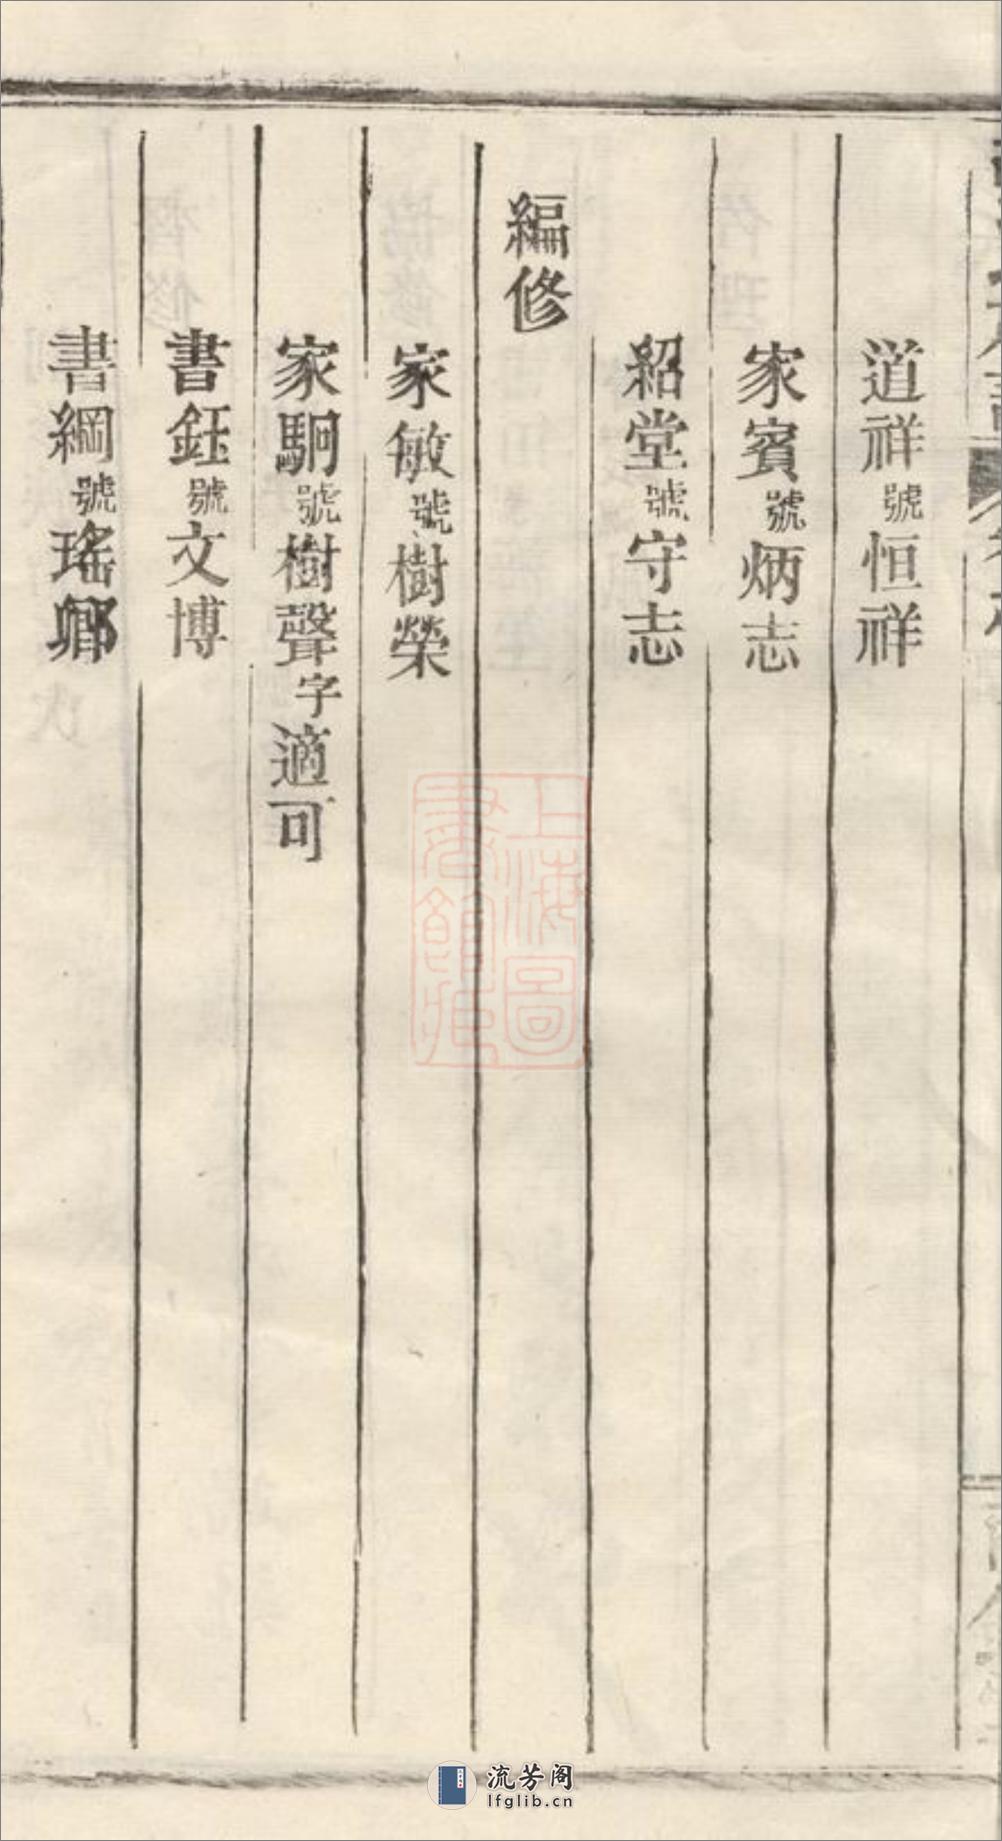 道祥號恒祥
家賓號炳志
紹堂號守志
編修
家敏號樹榮
家駉號樹聲字適可
書鈺號文博
書綱號瑤鄉
上海圖
書館藏
流芳阁
lfglib.cn